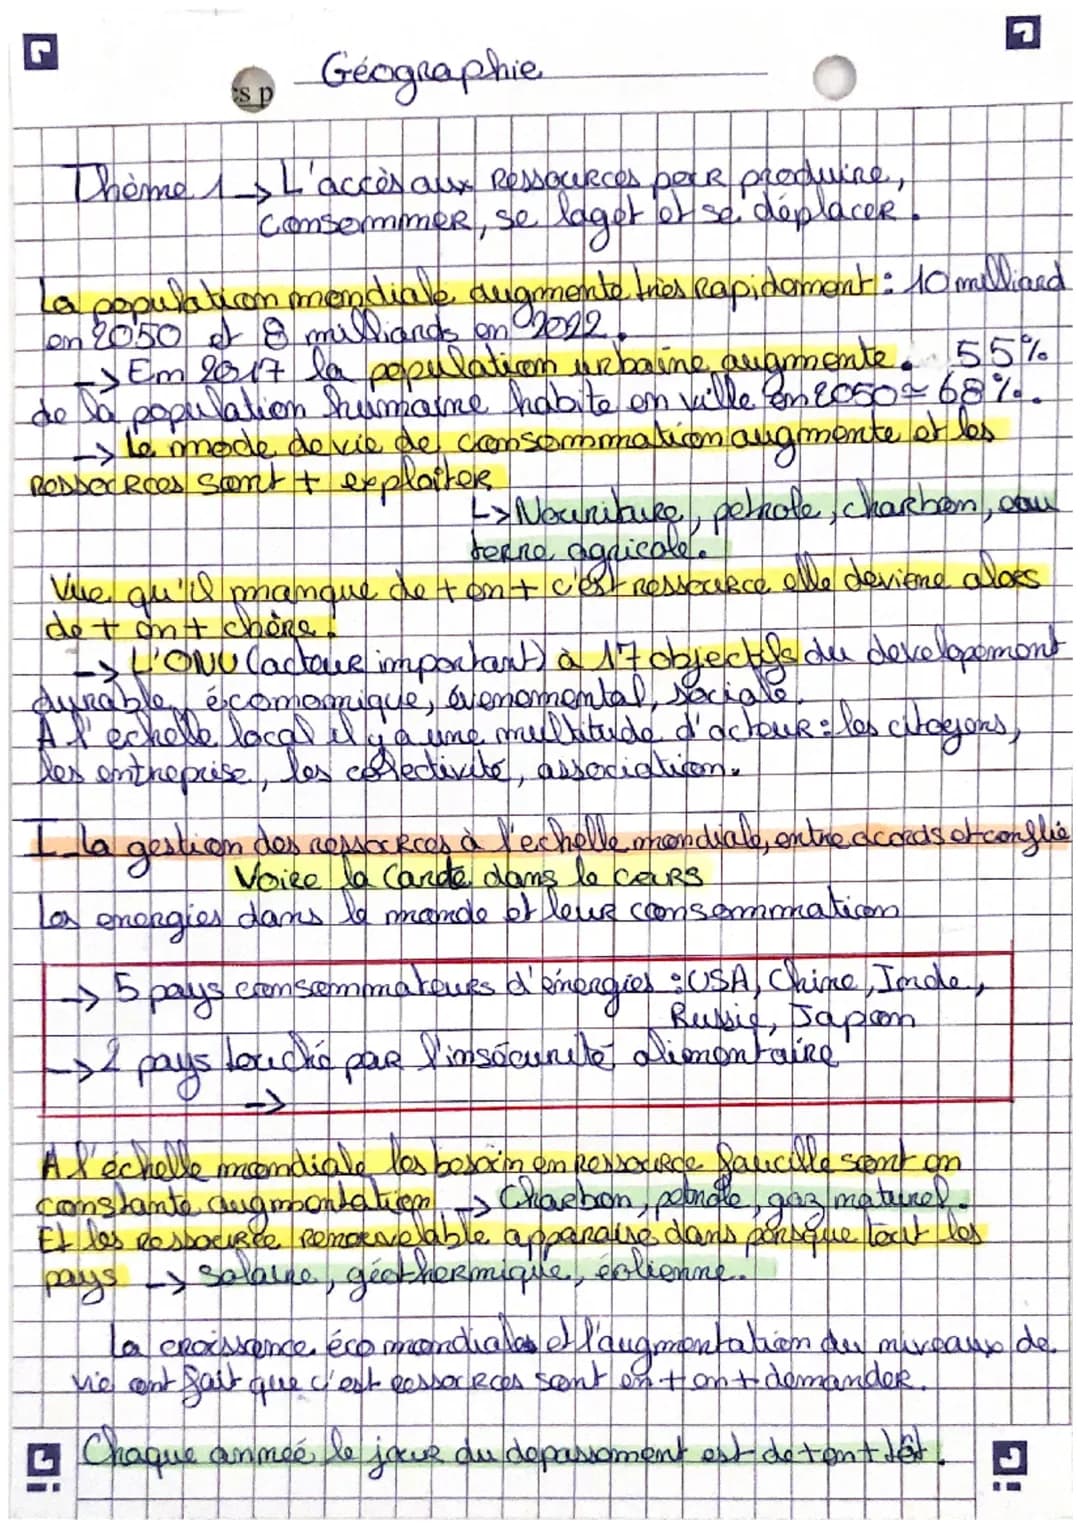 Géographie
es p
Thème 1 → L'accès aux Ressources pour produire,
consommmer, se loger et se déplacer.
La population mondiale augmente très Rapidement : 10 milliard
en 2050 et 8 milliards en 2022.
→ Em 2017 la population urbaine augmente. 55%
de la population humaine habite en ville en 2050 ≃ 68%.
→ Le mode de vie de consommmation augmente et les
Ressources sont + exploiter
↳> Nourriture, petrole, charbon, eau
terre agricole.
Vue qu'il manque de + en + c'est ressource elle devienne alors
de + en + chère.
→ L'ONU (acteur important) à 17 objectifs du developement
durable, écomomique, évenomental, sociale.
A l'échelle local il y a une multitude d'acteur : les citoyens,
les entreprise, les collectivité, association.
I - la gestion des ressources à l'echelle mondiale, entre acords et conflit
Voire la Carde dans le cours
Les energies dans le monde et leur consommmation
→ 5 pays consommmateurs d'énergies : USA, Chine, Inde,
Russie, Japon
→ 2 pays touché par l'insécurité alimentaire
→
A l'échelle mondiale les besoin en ressource faucille sont en
constante augmentation → Charbon, petrole, gaz naturel.
Et les ressource renouvelable apparaisé dans presque tout les
pays → solaire, géothermique, éolienne.
La croissance éco mondiales et l'augmentation du niveaux de
vie ont fait que c'est ressources sont en + en + demander.
Chaque anneé le jour du depassement est de + en + tôt.